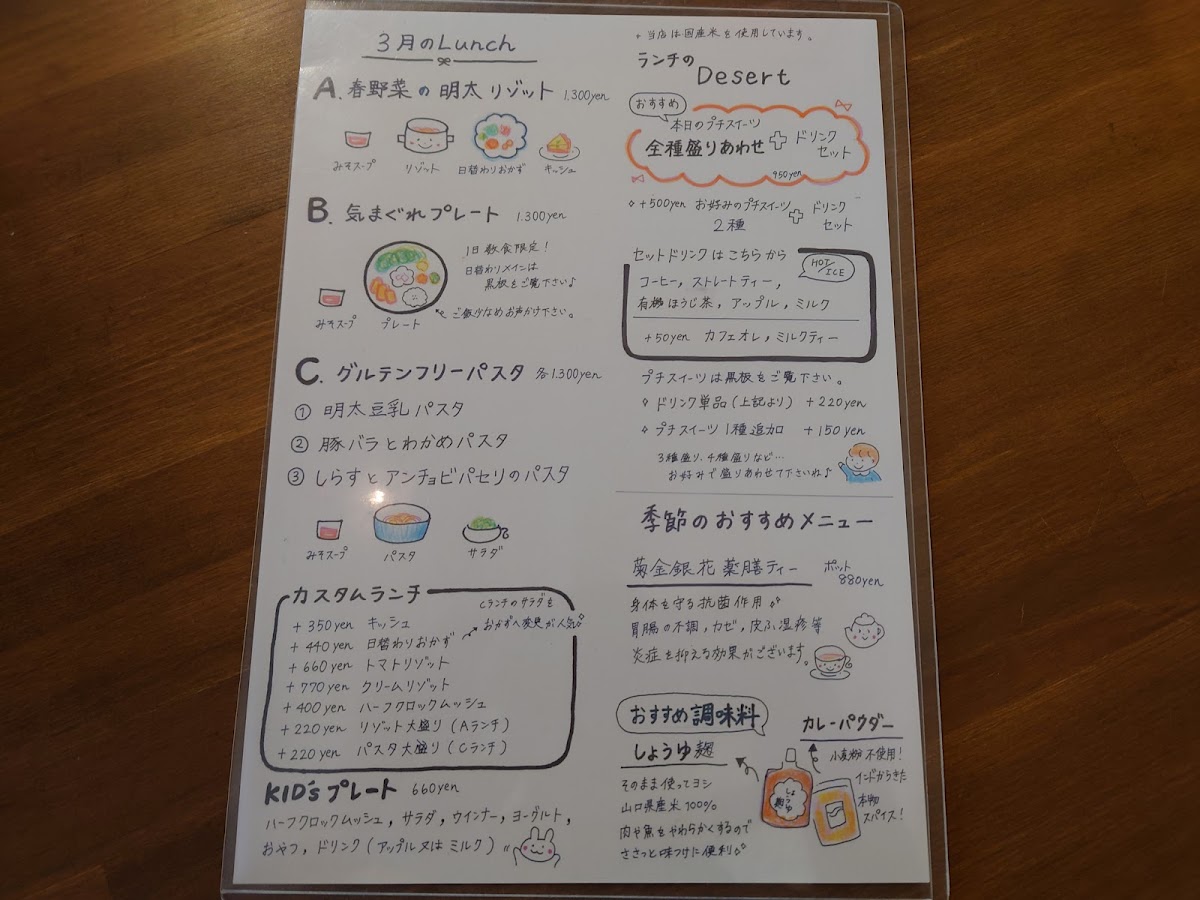 3月のLunch
A. 春野菜の明太リゾット 1.300yen
みそスープ リゾット 日替わりおかず キッシュ
B. 気まぐれプレート 1.300yen
1日数食限定!
日替わりメインは
黒板をご覧下さい♪
ご飯少なめお声かけ下さい。
みそスープ プレート
C. グルテンフリーパスタ 各1.300yen
① 明太豆乳パスタ
② 豚バラとわかめパスタ
③ しらすとアンチョビパセリのパスタ
みそスープ パスタ サラダ
カスタムランチ
Cランチのサラダを
おかずへ変更が人気
+350yen キッシュ
+440yen 日替わりおかず
+660yen トマトリゾット
+770yen クリームリゾット
+400yen ハーフクロックムッシュ
+220yen リゾット大盛り(Aランチ)
+220yen パスタ大盛り(Cランチ)
KID'sプレート 660yen
ハーフクロックムッシュ, サラダ, ウインナー, ヨーグルト,
おやつ, ドリンク(アップル又はミルク)
+ 当店は国産米を使用しています。
ランチの
Desert
おすすめ
本日のプチスイーツ
全種盛りあわせ + ドリンク
セット
950yen
+500yen お好みのプチスイーツ + ドリンク
2種 セット
セットドリンクはこちらから
HOT/ICE
コーヒー, ストレートティー,
有機ほうじ茶, アップル, ミルク
+50yen カフェオレ, ミルクティー
プチスイーツは黒板をご覧下さい。
ドリンク単品(上記より) +220yen
プチスイーツ1種追加 +150yen
3種盛り、4種盛りなど…
お好みで盛りあわせて下さいね♪
季節のおすすめメニュー
菊金銀花薬膳ティー ポット
880yen
身体を守る抗菌作用
胃腸の不調, カゼ, 皮ふ湿疹等
炎症を抑える効果がございます。
おすすめ調味料
しょうゆ麹
そのまま使ってヨシ
山口県産米100%
肉や魚をやわらかくするので
ささっと味つけに便利
しょうゆ
麹
カレーパウダー
小麦粉不使用!
インドからきた
本物
スパイス!